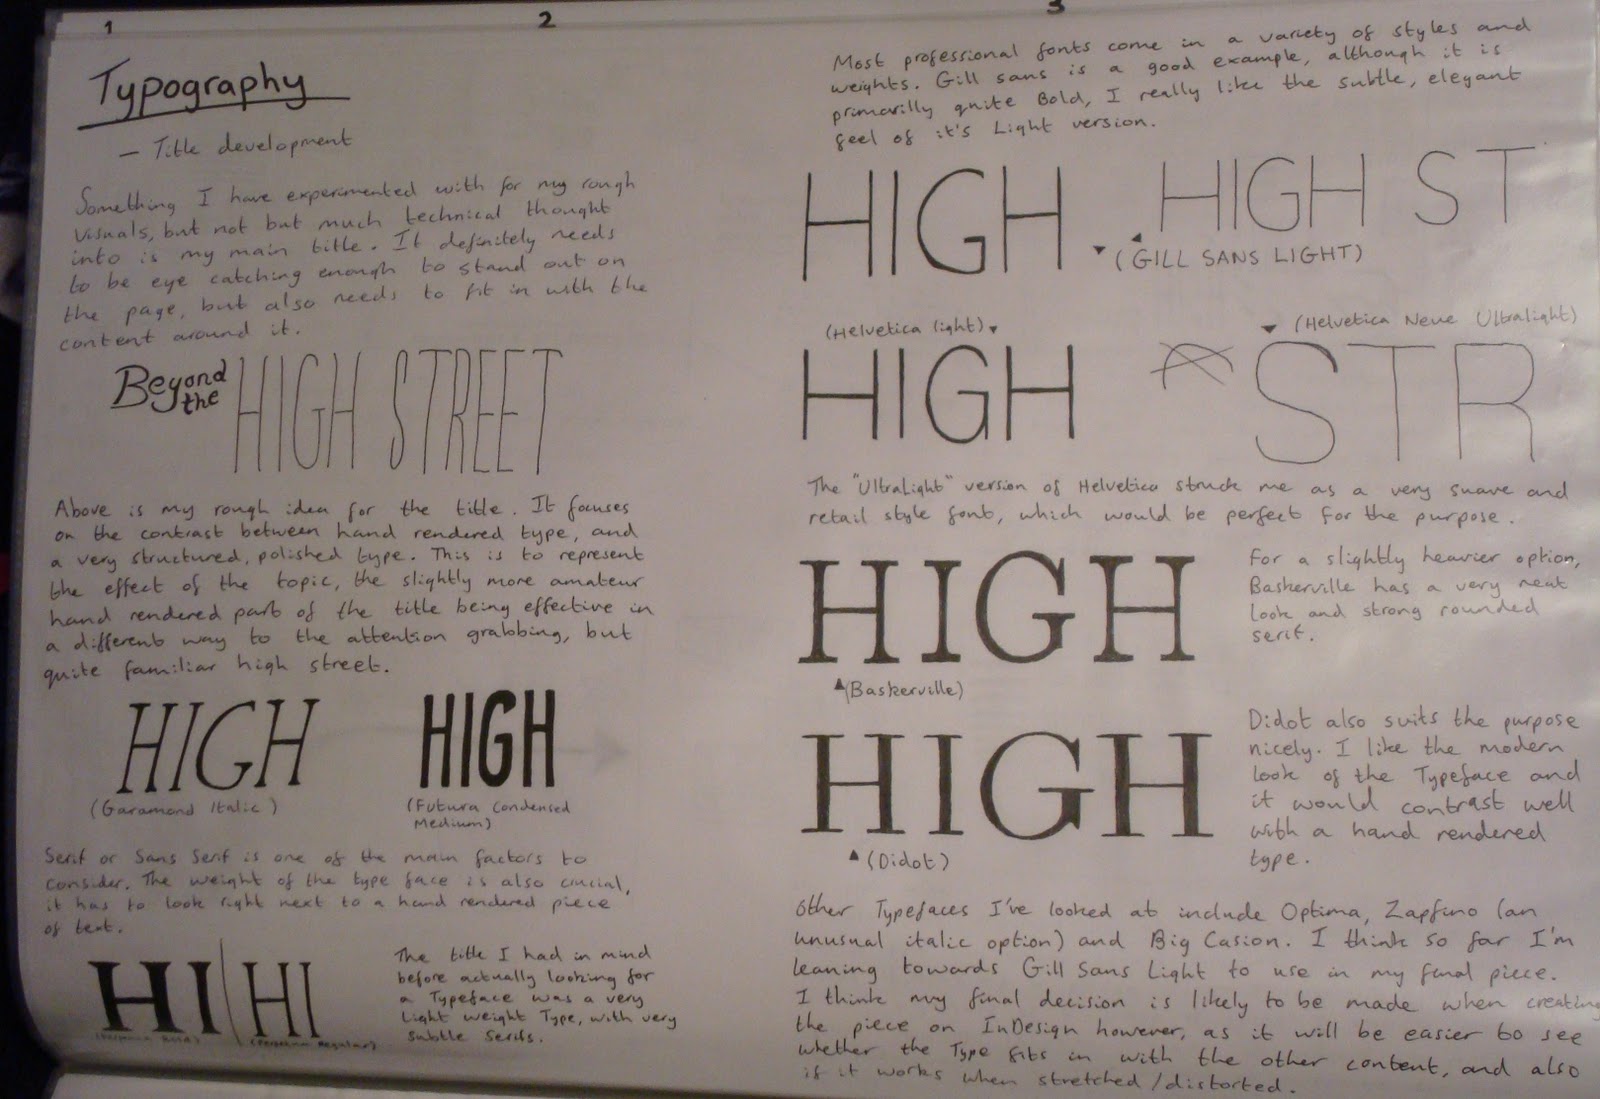 1
2
3
Typography
– Title development
Something I have experimented with for my rough
visuals, but not but much technical thought
into is my main title. It definitely needs
to be eye catching enough to stand out on
the page, but also needs to fit in with the
content around it.
Beyond
the
HIGH STREET
Above is my rough idea for the title. It focuses
on the contrast between hand rendered type, and
a very structured, polished type. This is to represent
the effect of the topic, the slightly more amateur
hand rendered part of the title being effective in
a different way to the attention grabbing, but
quite familiar high street.
HIGH
(Garamond Italic)
HIGH
(Futura Condensed
Medium)
Serif or Sans Serif is one of the main factors to
consider. The weight of the type face is also crucial,
it has to look right next to a hand rendered piece
of text.
HI
(Perpetua Bold)
HI
(Perpetua Regular)
The title I had in mind
before actually looking for
a Typeface was a very
Light weight Type, with very
subtle Serifs.
Most professional fonts come in a variety of styles and
weights. Gill sans is a good example, although it is
primarilly quite Bold, I really like the subtle, elegant
feel of it's Light version.
HIGH
HIGH ST
(GILL SANS LIGHT)
(Helvetica light)
HIGH
(Helvetica Neue Ultralight)
STR
The "UltraLight" version of Helvetica struck me as a very suave and
retail style font, which would be perfect for the purpose.
HIGH
(Baskerville)
For a slightly heavier option,
Baskerville has a very neat
look and strong rounded
serif.
HIGH
(Didot)
Didot also suits the purpose
nicely. I like the modern
look of the Typeface and
it would contrast well
with a hand rendered
type.
Other Typefaces I've looked at include Optima, Zapfino (an
unusual italic option) and Big Caslon. I think so far I'm
leaning towards Gill Sans Light to use in my final piece.
I think my final decision is likely to be made when creating
the piece on InDesign however, as it will be easier to see
whether the Type fits in with the other content, and also
if it works when stretched/distorted.